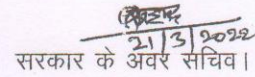 21/3/2022
सरकार के अवर सचिव।